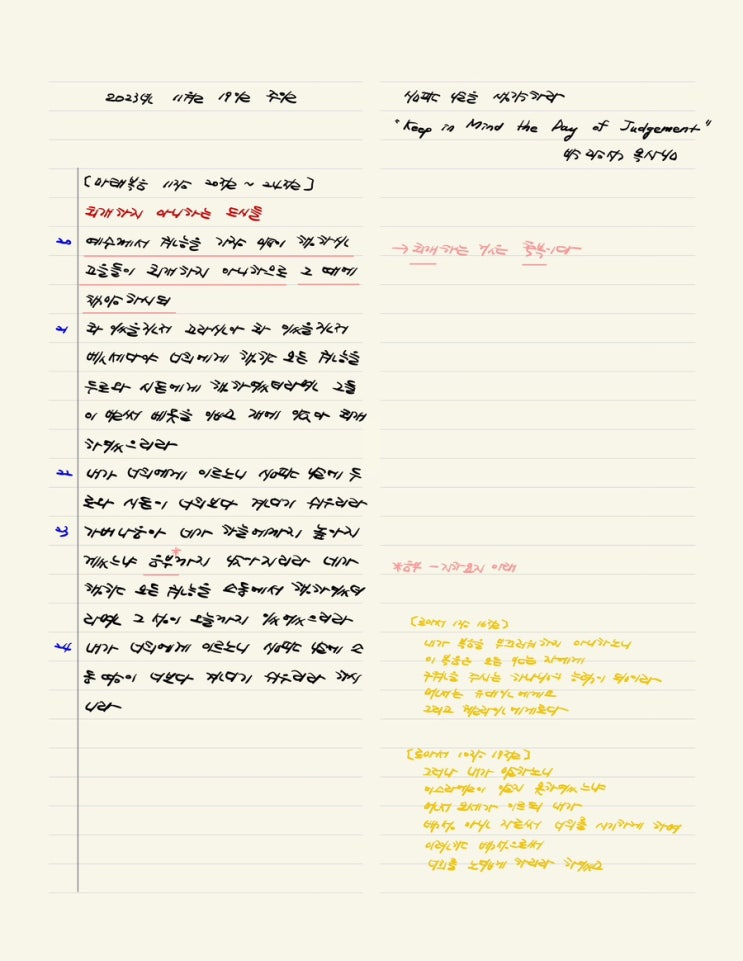 2023년 11월 19일 주일
[마태복음 11장 20절 ~ 24절]
회개하지 아니하는 도시들
20 예수께서 권능을 가장 많이 행하신
고을들이 회개하지 아니하므로 그 때에
책망하시되
21 화 있을진저 고라신아 화 있을진저
벳새다야 너희에게 행한 모든 권능을
두로와 시돈에서 행하였더라면 그들
이 벌써 베옷을 입고 재에 앉아 회개
하였으리라
22 내가 너희에게 이르노니 심판 날에 두
로와 시돈이 너희보다 견디기 쉬우리라
23 가버나움아 네가 하늘에까지 높아지
겠느냐 음부*까지 낮아지리라 네가
행한 모든 권능을 소돔에서 행하였더
라면 그 성이 오늘까지 있었으리라
24 내가 너희에게 이르노니 심판 날에 소
돔 땅이 너보다 견디기 쉬우리라 하시
니라
심판 날을 생각하라
"Keep in Mind the Day of Judgement"
박 목사님
→ 회개하는 것은 축복이다
*음부 -
[로마서 1장 16절]
내가 복음을 부끄러워하지 아니하노니
이 복음은 모든 믿는 자에게
구원을 주시는 하나님의 능력이 됨이라
먼저는 유대인에게요
그리고 헬라인에게로다
[로마서 10장 19절]
그러나 내가 말하노니
이스라엘이 알지 못하였느냐
먼저 모세가 이르되 내가
백성 아닌 자로써 너희를 시기하게 하며
미련한 백성으로써
너희를 노엽게 하리라 하였고